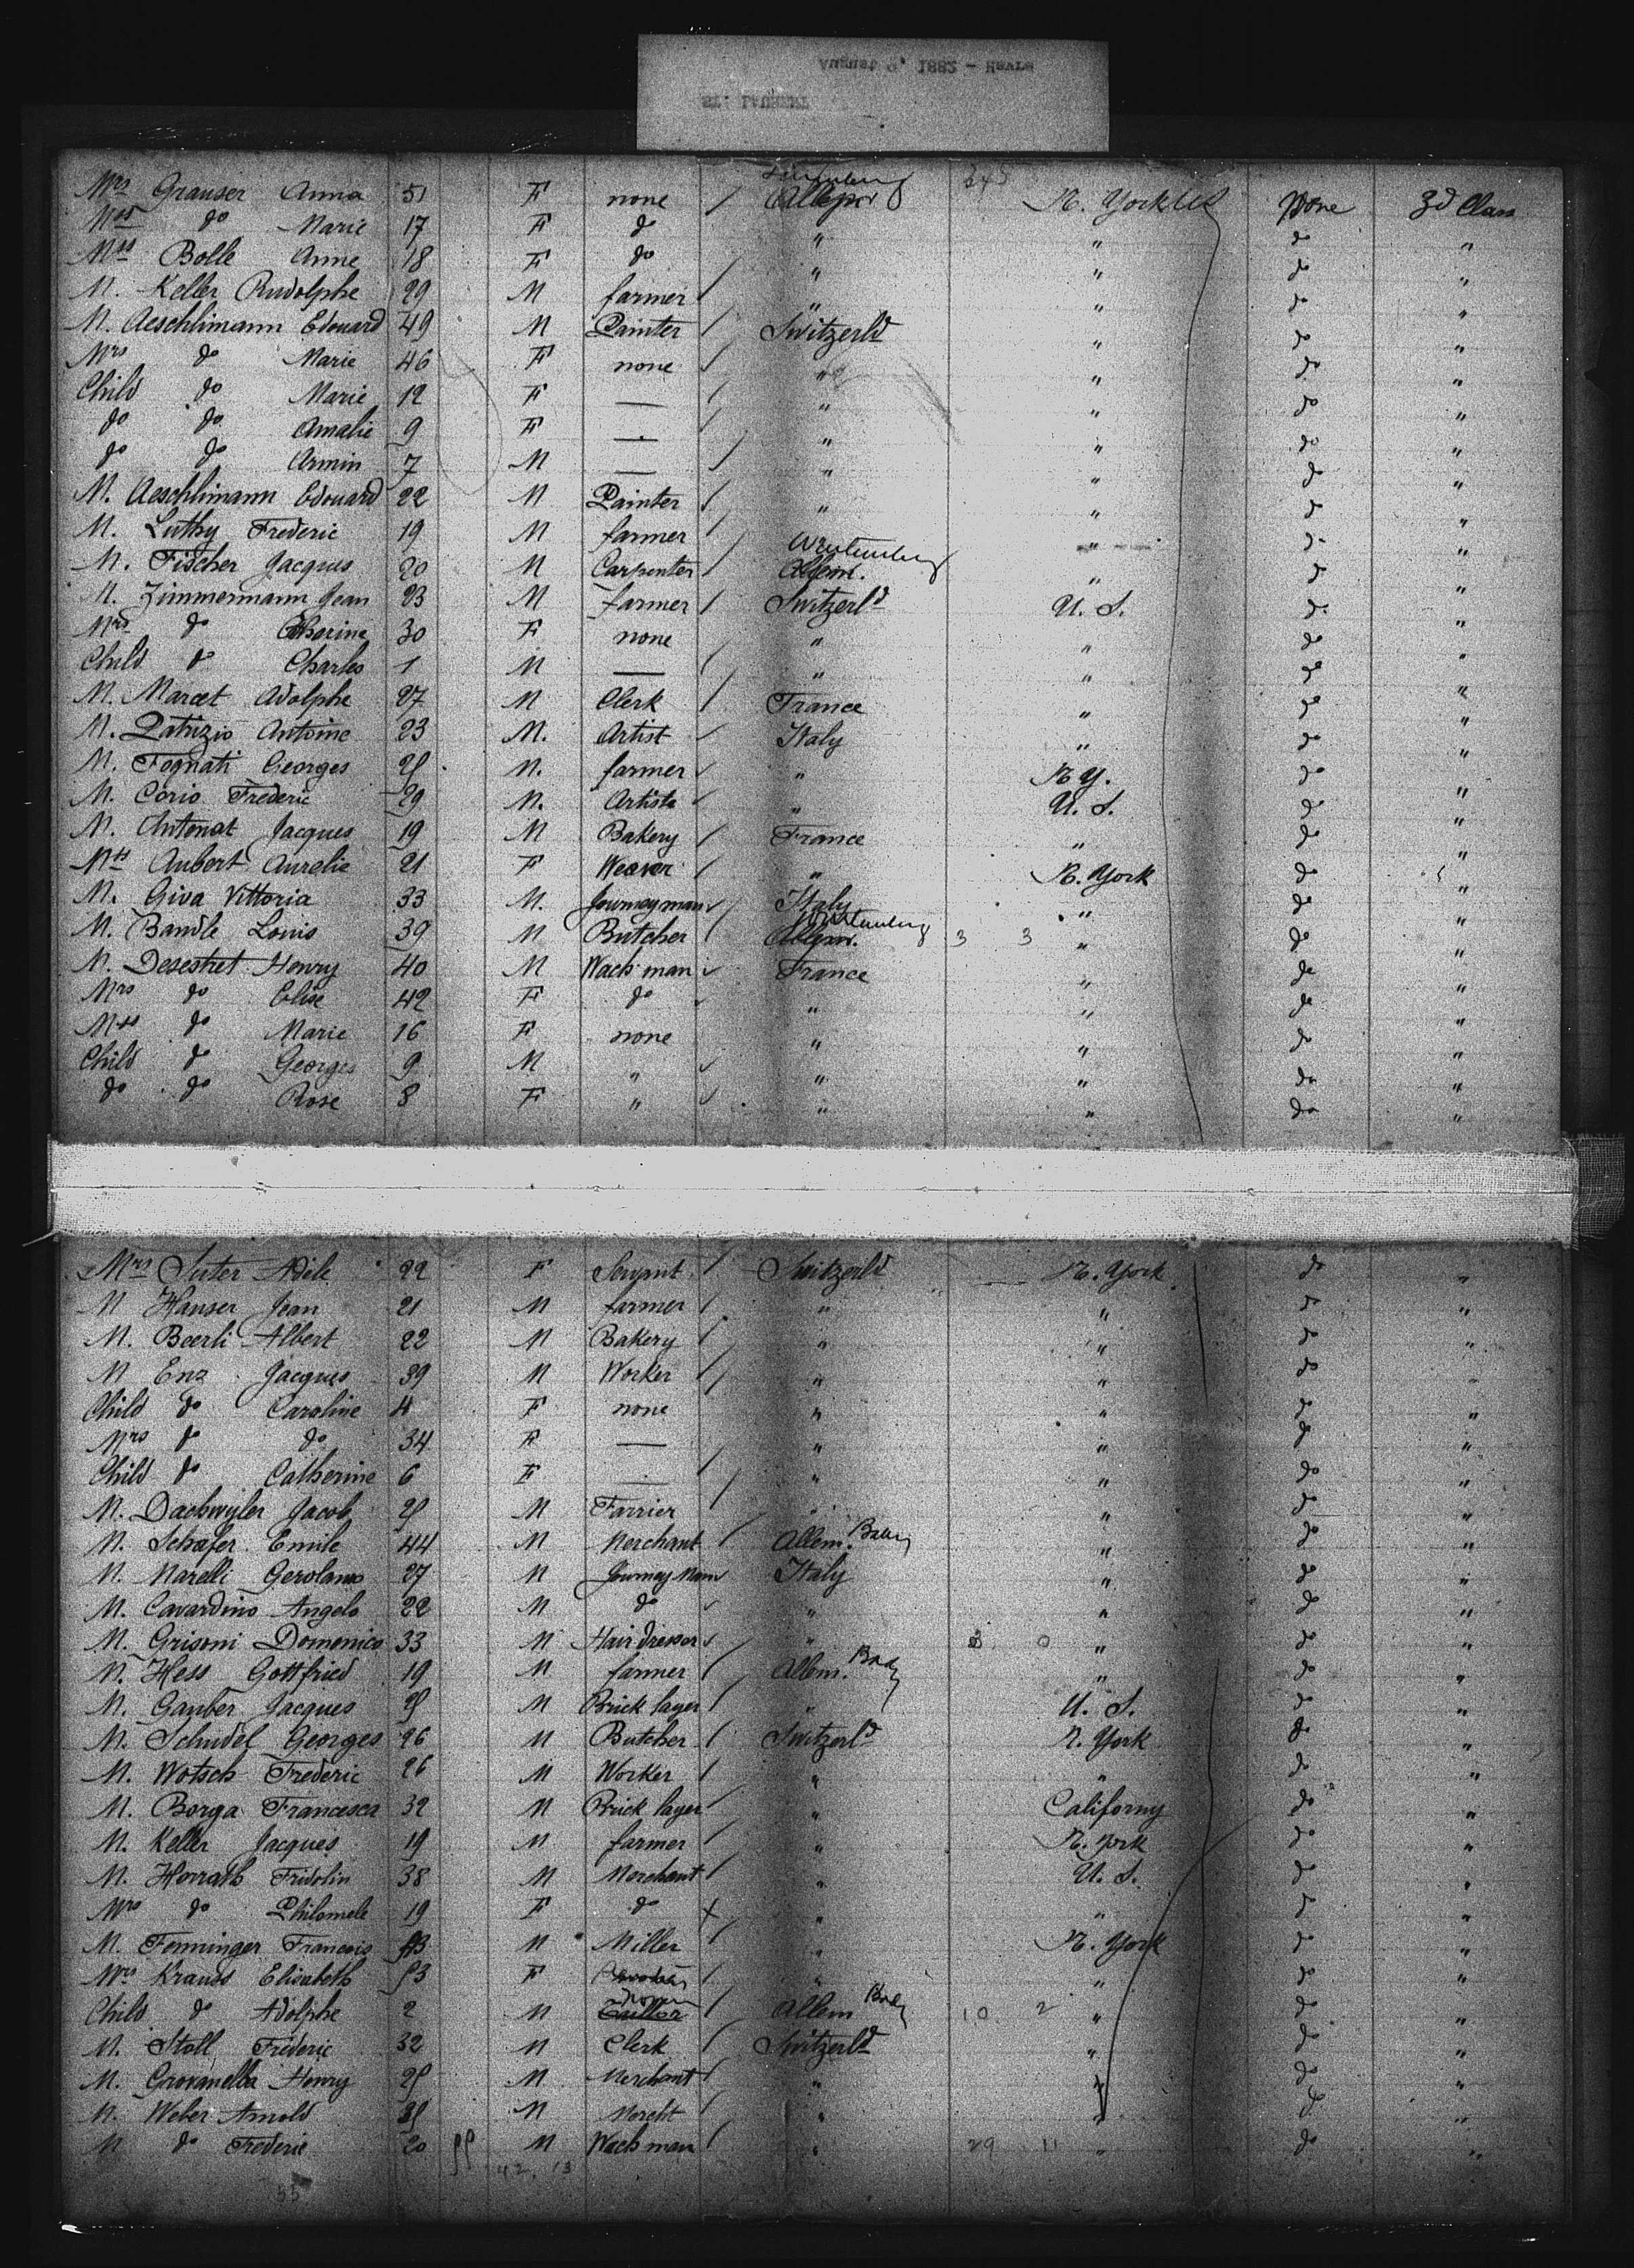 August 9, 1882 - Havre
ST. LAURENT
Mrs Grauser Anna 51 F none / Allem N. York US None 3d Class
Mss do Marie 17 F do " " do "
Mss Bolle Anne 18 F do / " " do "
M. Keller Rudolphe 29 M farmer / " " do "
M. Aeschlimann Edouard 49 M Painter / Switzerld " do "
Mrs do Marie 46 F none " " do "
Child do Marie 12 F — / " " do "
do do Amalie 9 F — / " " do "
do do Armin 7 M — / " " do "
M. Aeschlimann Edouard 22 M Painter / " " do "
M. Luthy Frederic 19 M farmer / " " do "
M. Fischer Jacques 20 M Carpenter / Wurtemberg Allem. " do "
M. Zimmermann Jean 23 M farmer / Switzerld U. S. do "
Mrs do Catharina 30 F none " " do "
Child do Charles 1 M — / " " do "
M. Marcet Adolphe 27 M Clerk / France " do "
M. Patrizio Antoine 23 M. Artist Italy " do "
M. Fognati Georges 25 M. farmer " N Y. do "
M. Corio Frederic 29 M. Artiste " U. S. do "
M. Antenat Jacques 19 M Bakery / France " do "
Mss Aubert Aurelie 21 F Weaver / " N. York do "
M. Giva Vittoria 33 M. Journeyman Italy " do "
M. Bandle Louis 39 M Butcher / Wurtemberg Allem. 3 3 " do "
M. Desestret Henry 40 M Wach man France " do "
Mrs do Elise 42 F do " " do "
Mss do Marie 16 F none " " do "
Child do Georges 9 M " " " do "
do do Rose 8 F " " " do "
Mrs Suter Adele 22 F Servant / Switzerld N. York do "
M Hauser Jean 21 M farmer / " " do "
M. Beerli Albert 22 M Bakery / " " do "
M Enz Jacques 39 M Worker / " " do "
Child do Caroline 4 F none " " do "
Mrs do do 34 F — / " " do "
Child do Catherine 6 F — / " " do "
M. Dachwyler Jacob 25 M Farrier / " " do "
M. Schafer Emile 44 M Merchant / Allem. Baden " do "
M. Marelli Gerolamo 27 M Journey Man Italy " do "
M. Cavardino Angelo 22 M do " " do "
M. Grisoni Domenico 33 M Hair dresser " 3 0 " do "
M. Hess Gottfried 19 M farmer / Allem. Baden " do "
M. Gauber Jacques 25 M Brick layer / " U. S. do "
M. Schudel Georges 26 M Butcher / Switzerld N. York do "
M. Wotsch Frederic 26 M Worker / " " do "
M. Borga Francesca 32 M Brick layer / " Californy do "
M. Keller Jacques 19 M farmer / " N. York do "
M. Horrath Fridolin 38 M Merchant / " U. S. do "
Mrs do Philomele 19 F do x " " do "
M. Fenninger Francois 43 M Miller / " N. York do "
Mrs Krauss Elisabeth 53 F / " " do "
Child do Adolphe 2 M / Allem Baden 10 2 " do "
M. Stoll Frederic 32 M Clerk / Switzerld " do "
M. Grovanella Henry 25 M Merchant / " " do "
M. Weber Arnold 35 M Mercht / " " do "
M do Frederic 20 55 M Wach man / " 29 11 " do "
42. 13
55